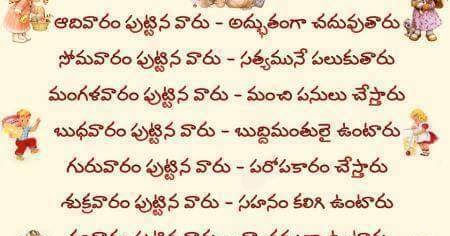 ఆదివారం పుట్టిన వారు - అద్భుతంగా చదువుతారు
సోమవారం పుట్టిన వారు - సత్యమునే పలుకుతారు
మంగళవారం పుట్టిన వారు - మంచి పనులు చేస్తారు
బుధవారం పుట్టిన వారు - బుద్దిమంతులై ఉంటారు
గురువారం పుట్టిన వారు - పరోపకారం చేస్తారు
శుక్రవారం పుట్టిన వారు - సహనం కలిగి ఉంటారు